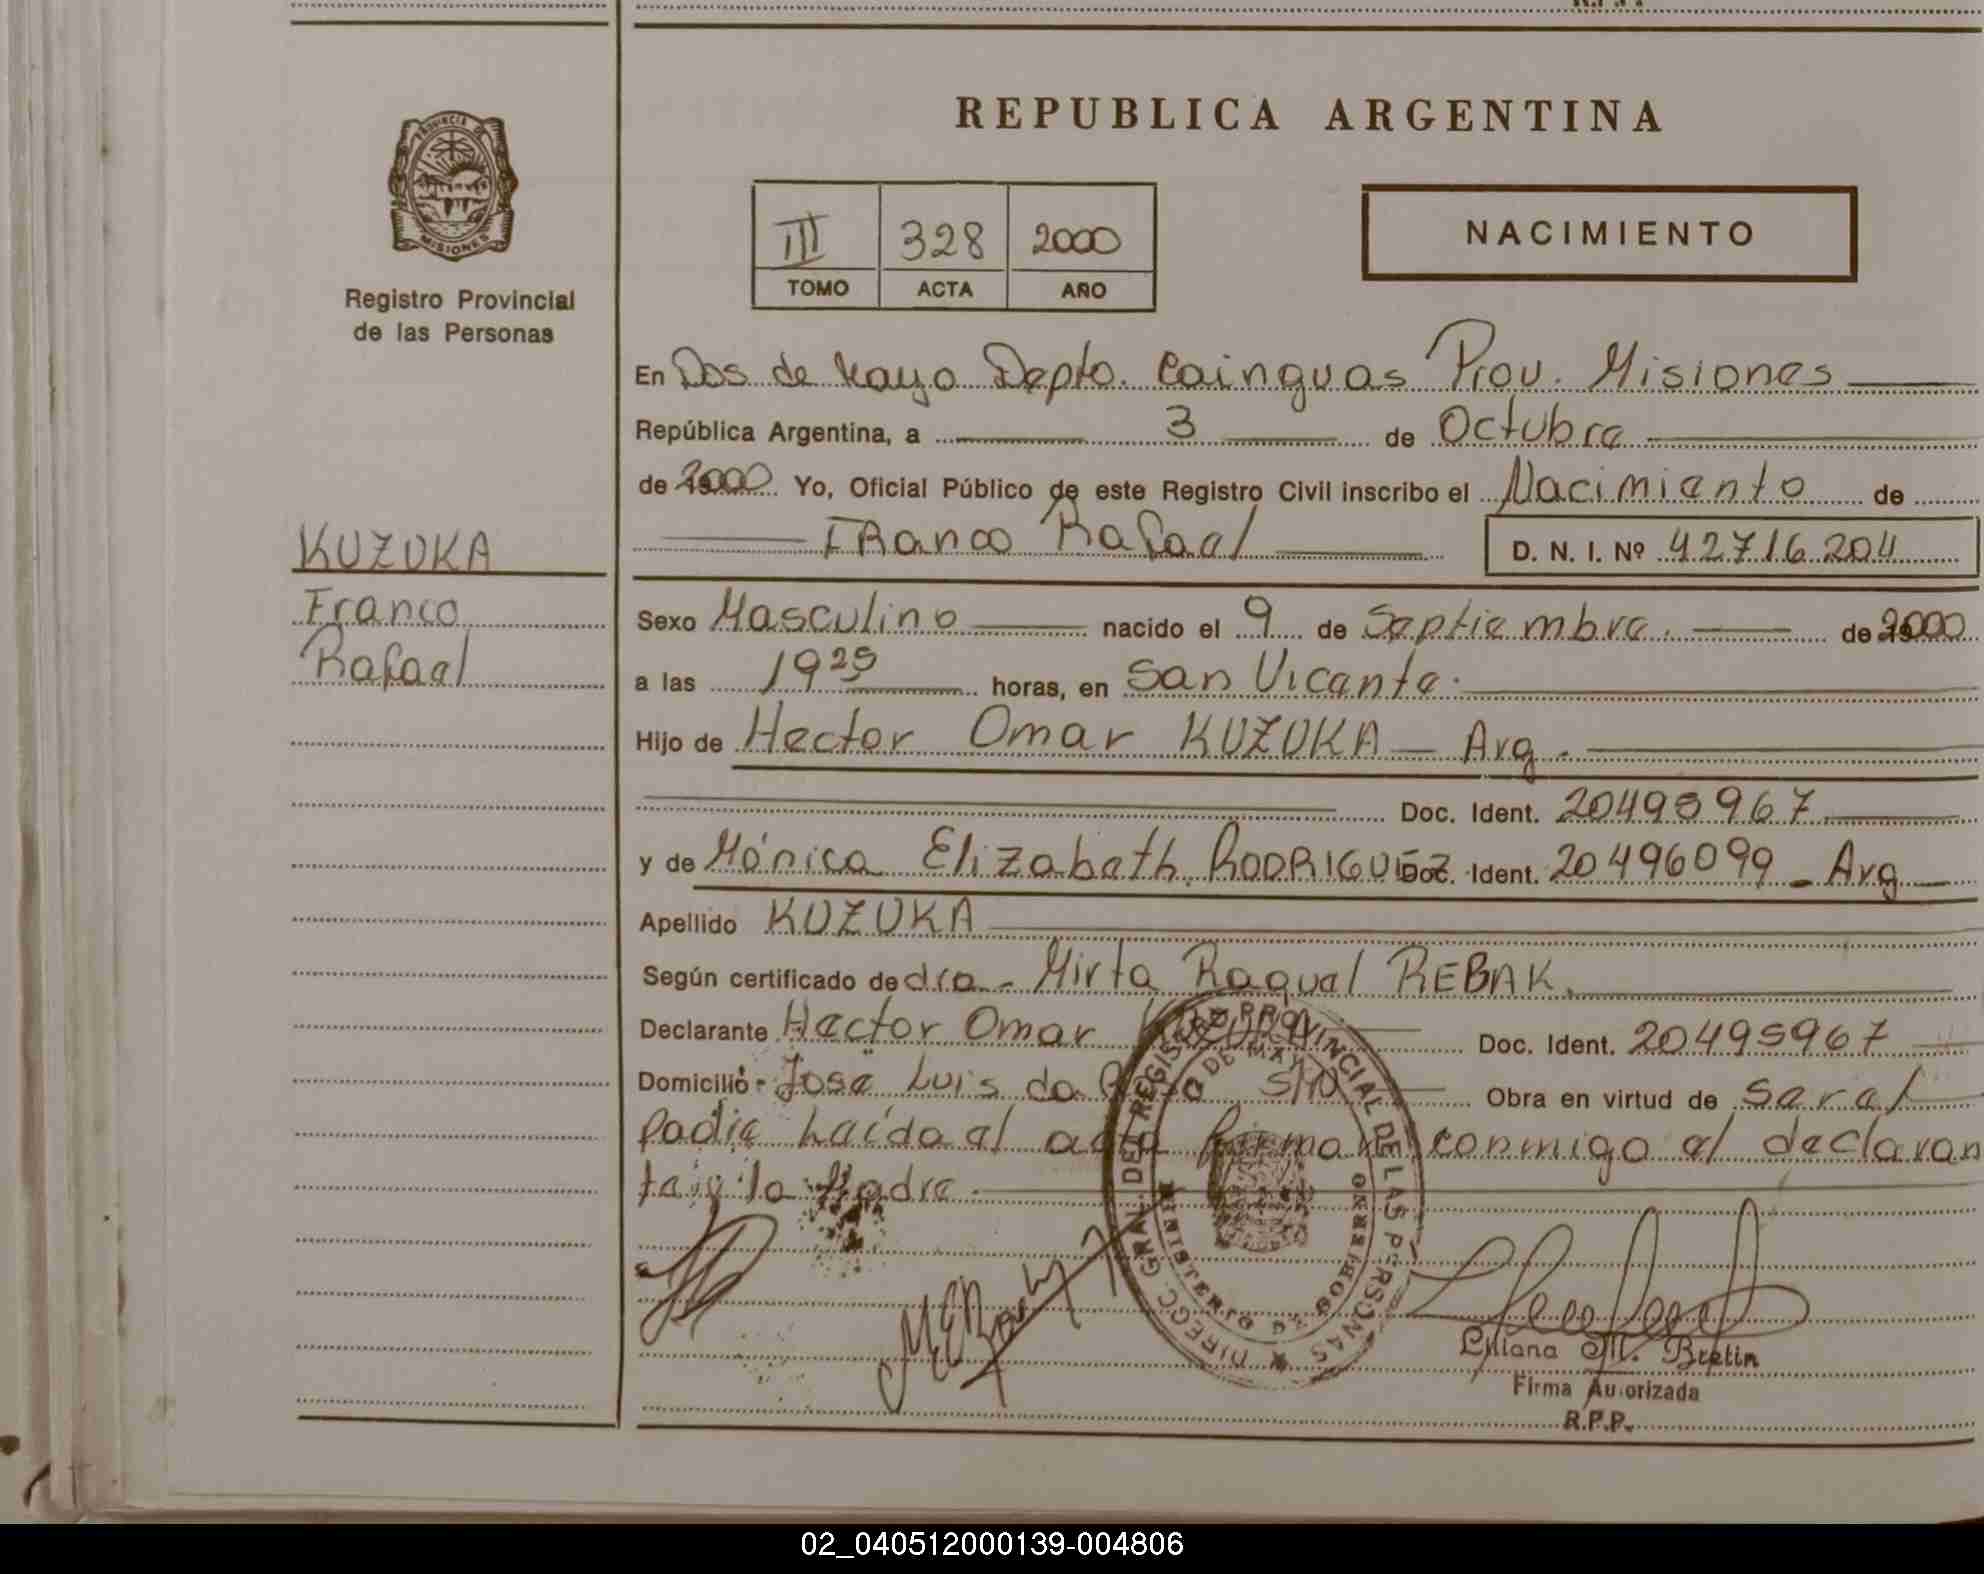 REPUBLICA ARGENTINA
PROVINCIA DE
MISIONES
Registro Provincial
de las Personas
III 328 2000
TOMO ACTA AÑO
NACIMIENTO
En Dos de Mayo Depto. Cainguas Prov. Misiones
República Argentina, a 3 de Octubre
de 2000 Yo, Oficial Público de este Registro Civil inscribo el Nacimiento de
Franco Rafael D. N. I. Nº 42716204
KUZUKA
Franco
Rafael
Sexo Masculino nacido el 9 de Septiembre. de 2000
a las 19 25 horas, en San Vicente.
Hijo de Hector Omar KUZUKA - Arg.
Doc. Ident. 20495967
y de Mónica Elizabeth RODRIGUEZ Doc. Ident. 20496099 - Arg
Apellido KUZUKA
Según certificado de dra. Mirta Raquel REBAK.
Declarante Hector Omar KUZUKA Doc. Ident. 20495967
Domicilio José Luis do S/N Obra en virtud de ser el
Padre Leída el acta firman conmigo el declaran
te y la Madre.
DIREGC. GRAL. DEL REGISTRO PROVINCIAL DE LAS PERSONAS
DE MAYO
MINISTERIO DE GOBIERNO
Liliana M. Bretin
Firma Autorizada
R.P.P.
02_040512000139-004806